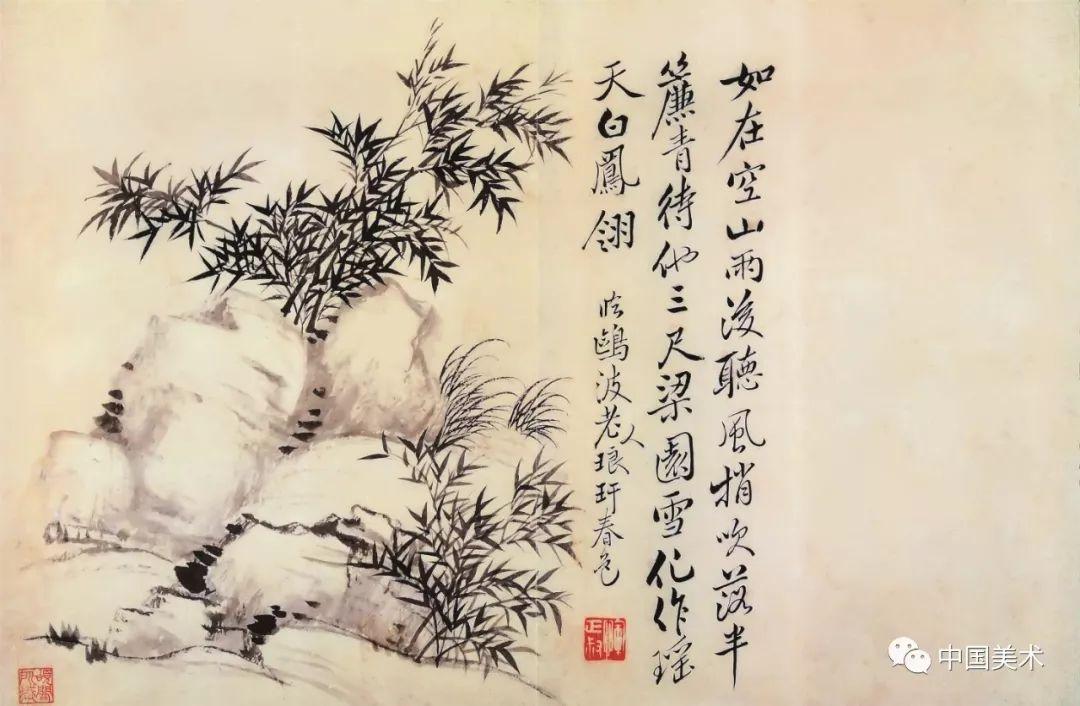 如在空山雨後聽風梢吹落半
簾青待他三尺梁園雪化作瑤
天白鳳翎
臨鷗波老人琅玕春色
惲正叔
中国美术